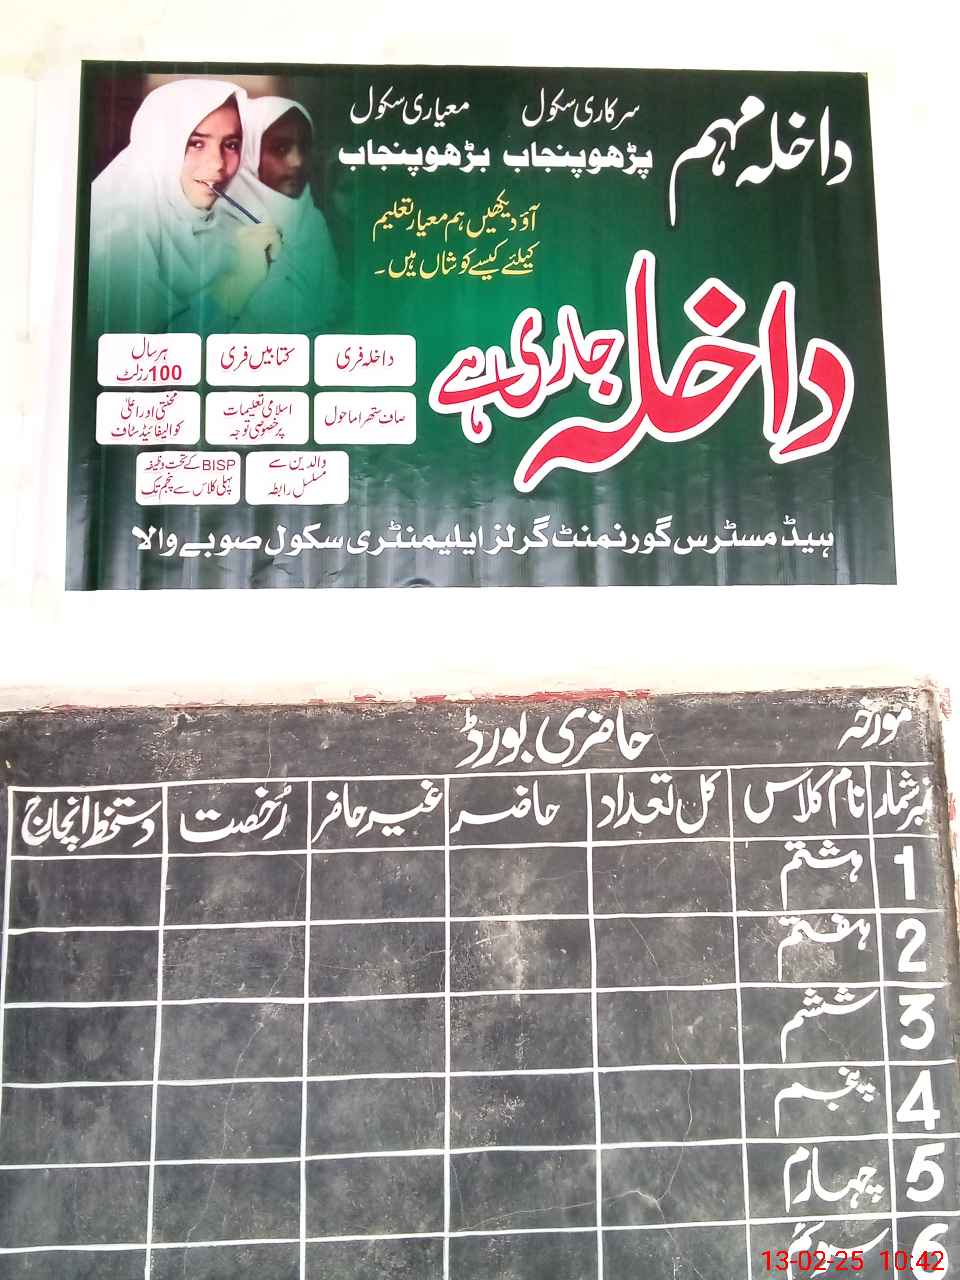 داخلہ مہم
سرکاری سکول معیاری سکول
پڑھو پنجاب بڑھو پنجاب
آؤ دیکھیں ہم معیار تعلیم
کیلئے کیسے کوشاں ہیں۔
داخلہ جاری ہے
داخلہ فری
کتابیں فری
ہر سال
100 رزلٹ
صاف ستھرا ماحول
اسلامی تعلیمات
پر خصوصی توجہ
محنتی اور اعلیٰ
کوالیفائیڈ سٹاف
والدین سے
مسلسل رابطہ
BISP کے تحت وظیفہ
پہلی کلاس سے پنجم تک
ہیڈ مسٹرس گورنمنٹ گرلز ایلیمنٹری سکول صوبے والا
حاضری بورڈ
مورخہ
نمبر شمار نام کلاس کل تعداد حاضر غیر حافر رُخصت دستخط انچارج
1 ہشتم
2 ہفتم
3 ششم
4 پنجم
5 چہارم
6 سوئم
13-02-25 10:42